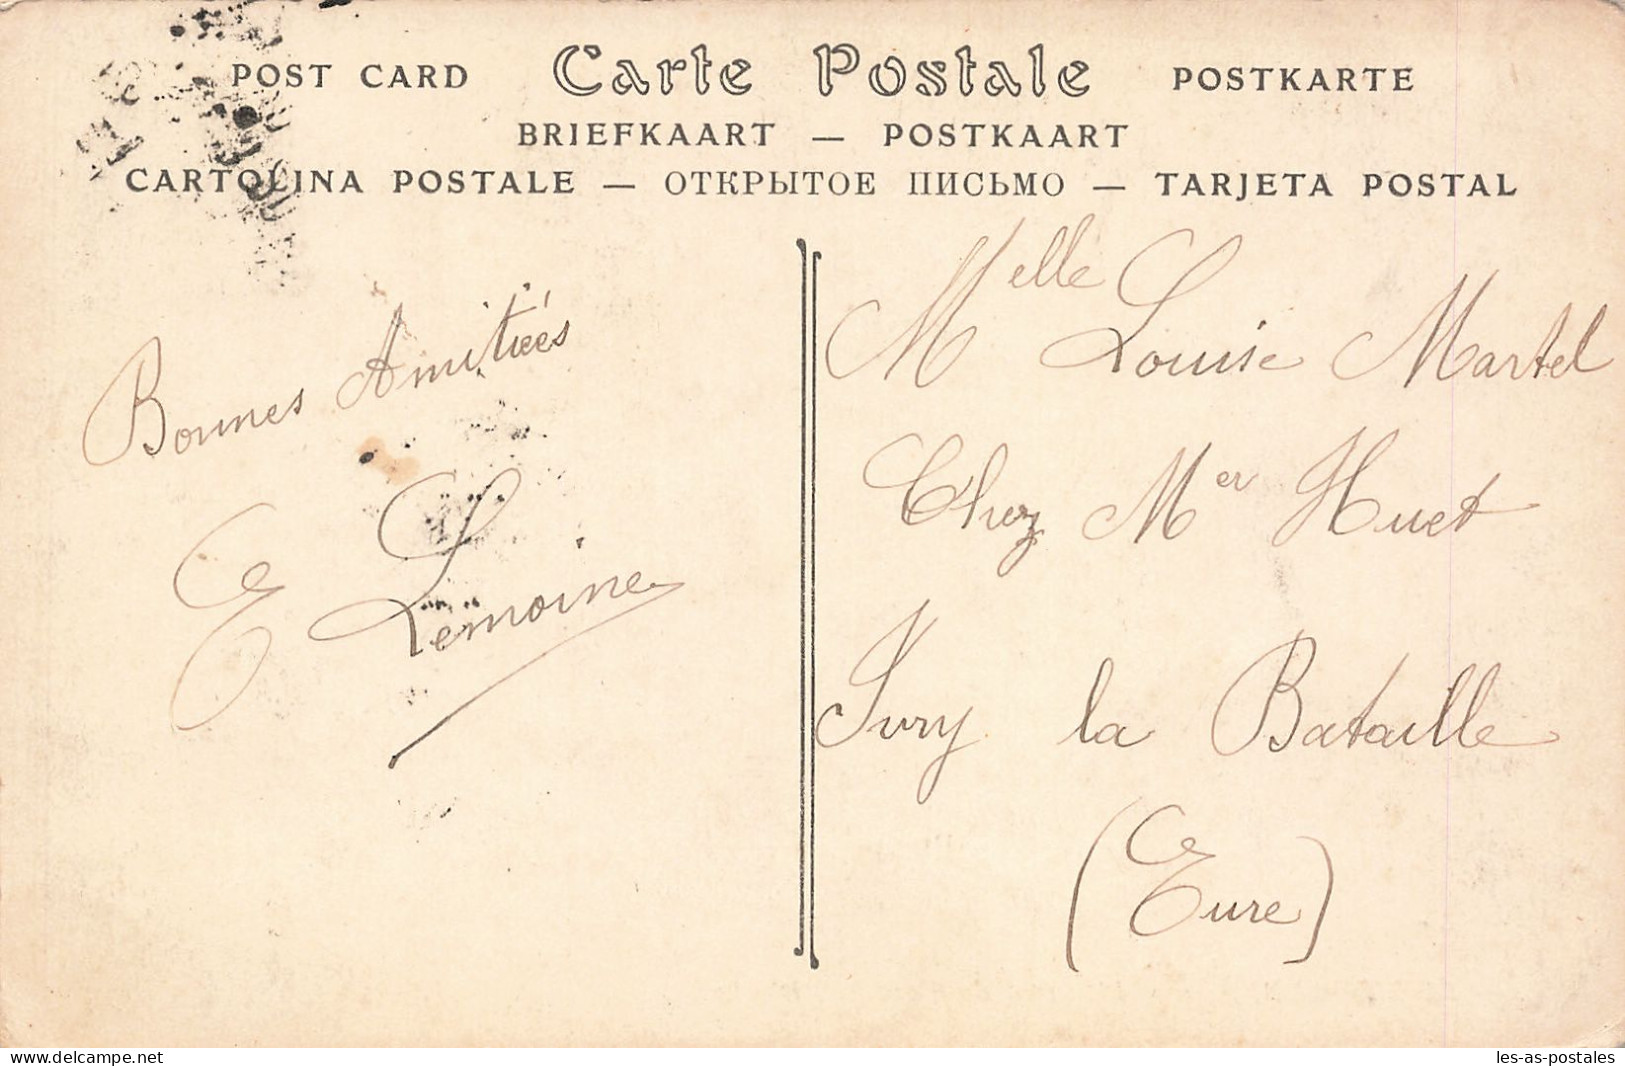 POST CARD Carte Postale POSTKARTE
BRIEFKAART — POSTKAART
CARTOLINA POSTALE — ОТКРЫТОЕ ПИСЬМО — TARJETA POSTAL
Bonnes Amitiées
E Lemoine
Melle Louise Martel
Chez Mer Huet
Ivry la Bataille
(Eure)
delcampe.net
les-as-postales